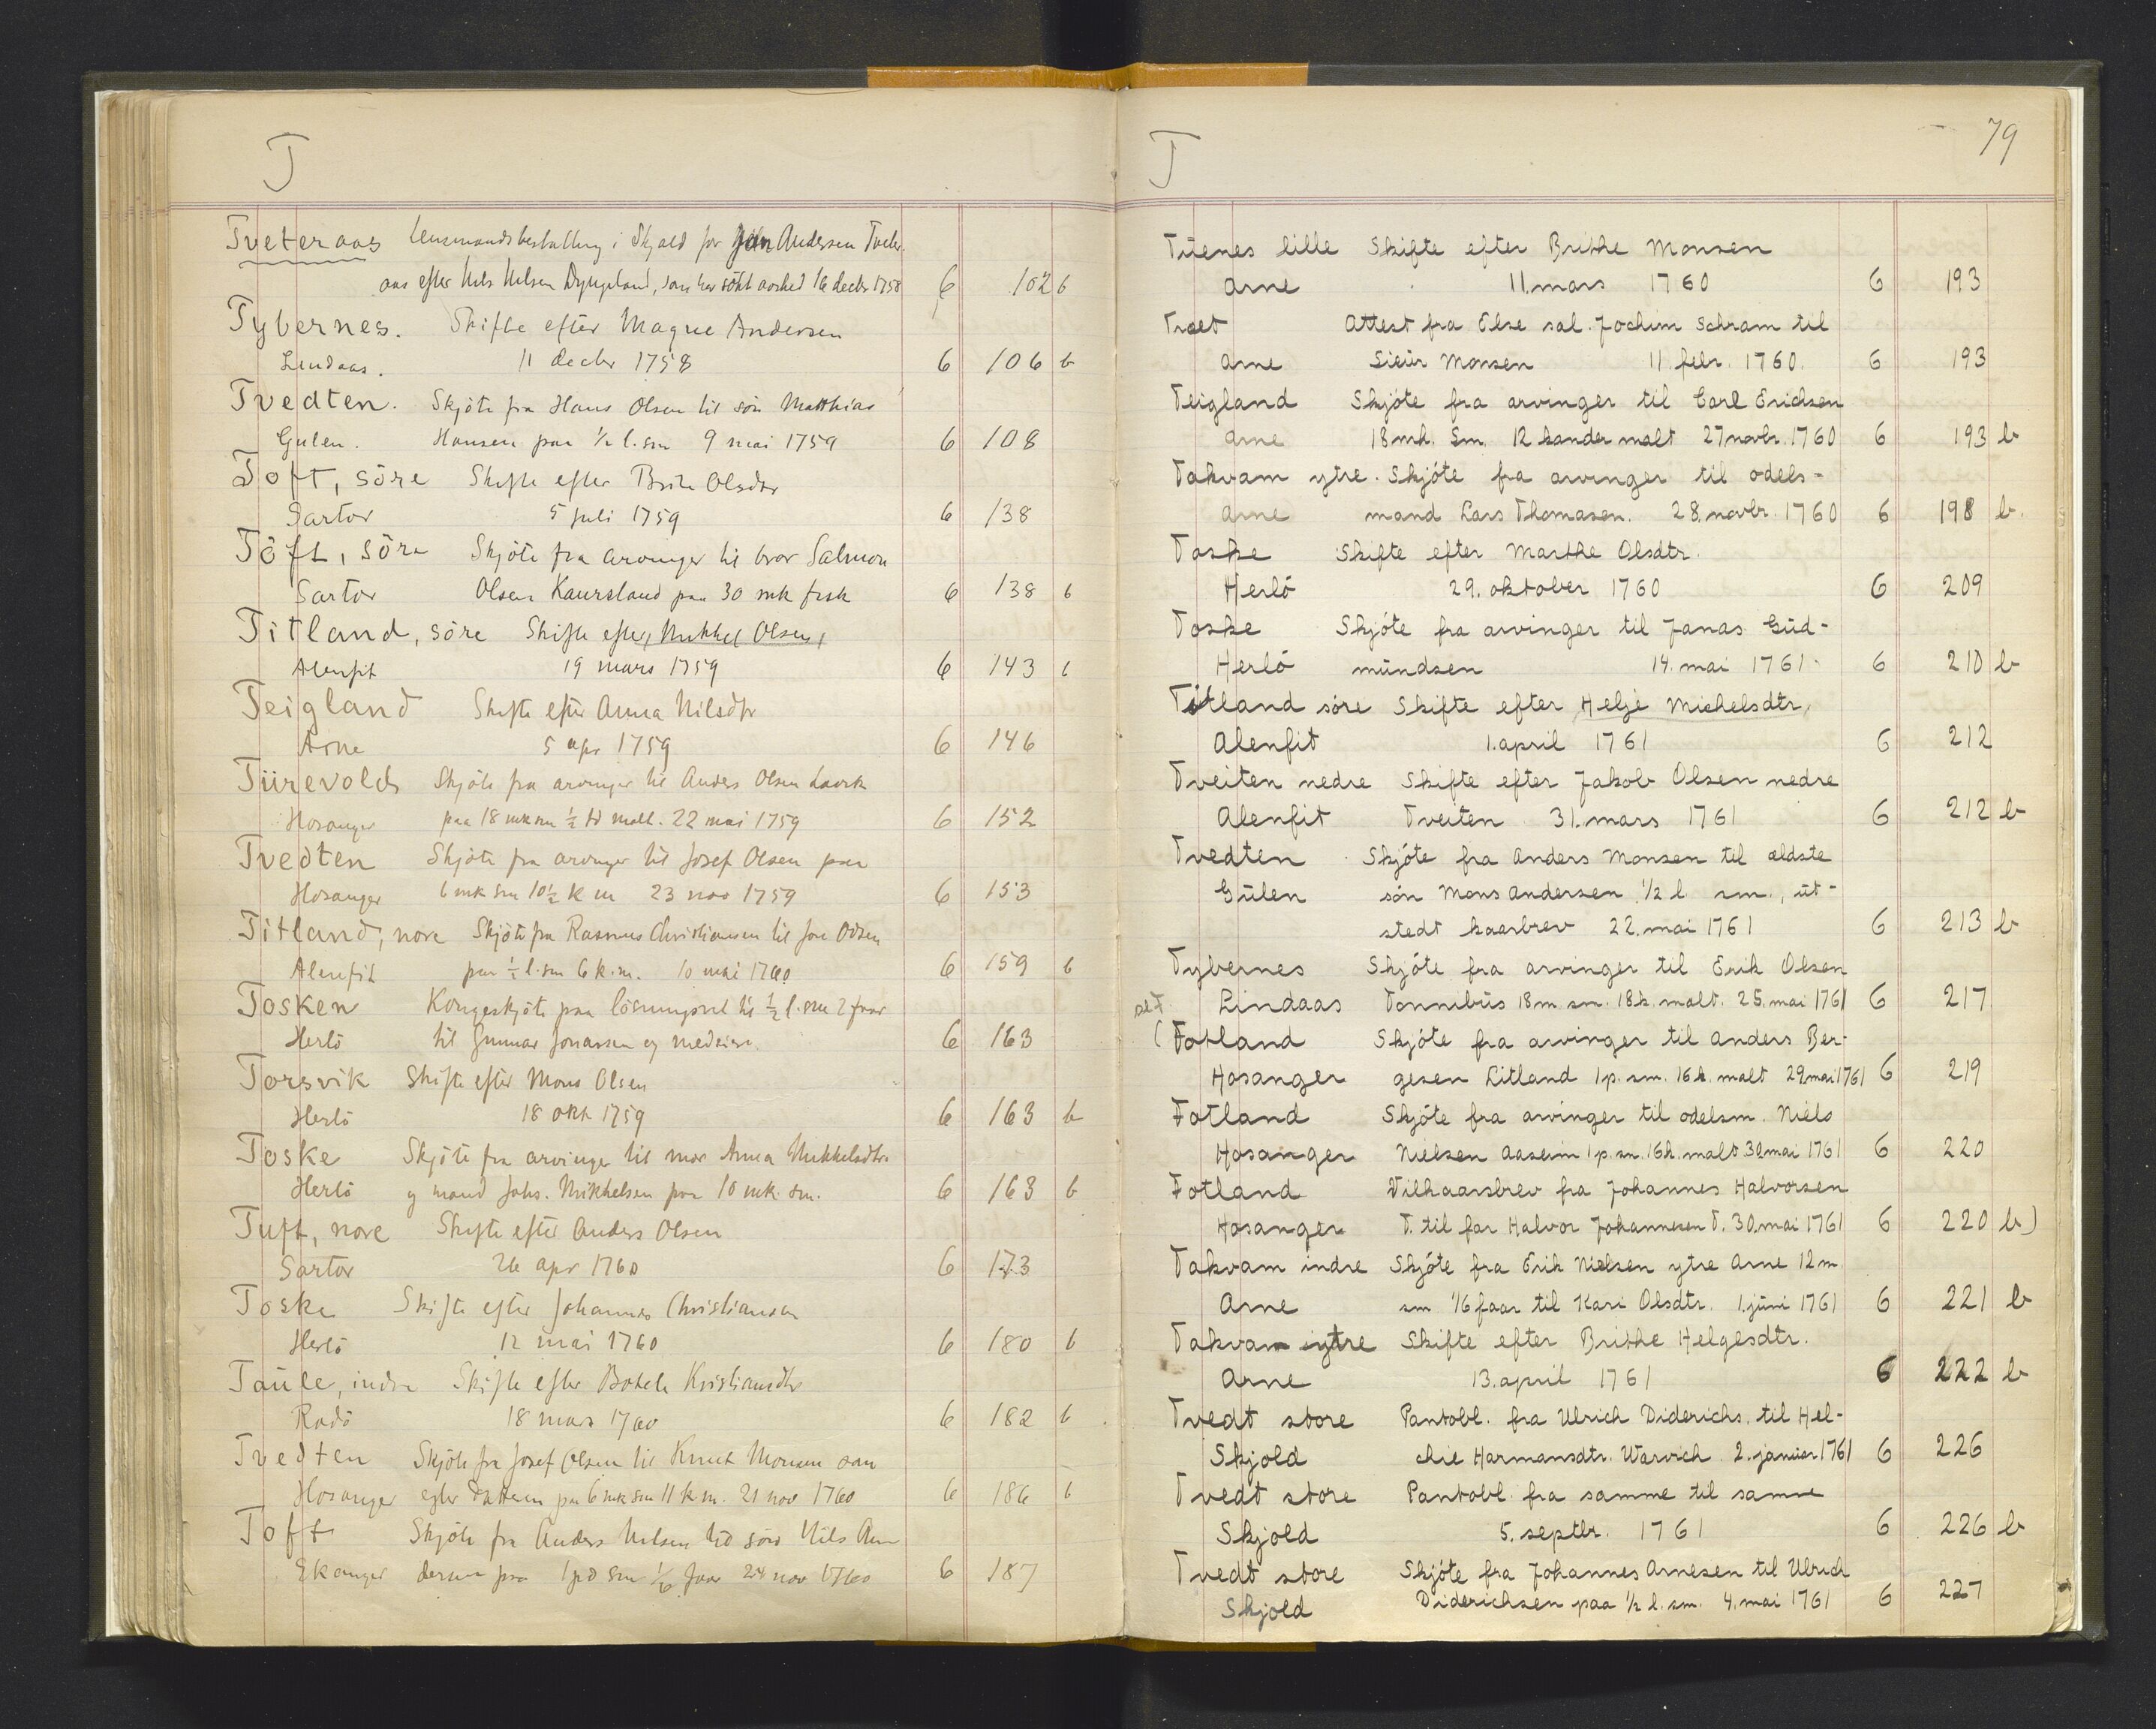 T
Tveteraas Lensmandsbestalling i Skjold for John Andersen Tveter-
aas efter Nils Nilsen Dyngeland, som har sökt avsked 16 decbr 1758 6 102 b
Tybernes. Skifte efter Magne Andersen
Lindaas. 11 decbr 1758 6 106 b
Tvedten. Skjöte fra Hans Olsen til sön Matthias
Gulen. Hansen paa ½ l. sm 9 mai 1759 6 108
Toft, söre Skifte efter Brite Olsdtr
Sartor 5 juli 1759 6 138
Töft, söre Skjöte fra arvinger til bror Salmon
Sartor Olsen Kaursland paa 30 mk fisk 6 138 b
Titland, söre Skifte efter Mikkel Olsen
Alenfit 19 mars 1759 6 143 b
Teigland Skifte efter Anna Nilsdtr
Arne 5 apr 1759 6 146
Türevold Skjöte fra arvinger til Anders Olsen
Hosanger paa 18 mk sm ½ td malt. 22 mai 1759 6 152
Tvedten Skjöte fra arvinger til Josef Olsen paa
Hosanger 6 mk sm 10½ k m 23 nov 1759 6 153
Titland, nore Skjöte fra Rasmus Christiansen til Jon Odsen
Alenfit paa ½ l. sm 6 k. m. 10 mai 1760 6 159 b
Tosken Kongeskjöte paa lösningsret til ½ l. sm 2 faar
Herlö til Gunnar Jonassen og medeiere 6 163
Torsvik Skifte efter Mons Olsen
Herlö 18 okt 1759 6 163 b
Toske Skjöte fra arvinger til mor Anna Mikkelsdtr.
Herlö og mand Johs. Mikkelsen paa 10 mk. sm. 6 163 b
Tuft, nore Skifte efter Anders Olsen
Sartor 26 apr 1760 6 173
Toske Skifte efter Johannes Christiansen
Herlö 12 mai 1760 6 180 b
Taule, indre Skifte efter Botele Kristiansdtr
Radö 18 mars 1760 6 182 b
Tvedten Skjöte fra Josef Olsen til Knut Monsen som
Hosanger egter datteren paa 6 mk sm 11 k m. 21 nov 1760 6 186 b
Toft Skjöte fra Anders Nilsen til sön Nils An-
Ekanger dersen paa 1 pd sm 1/6 faar 24 nov 1760 6 187
T 79
Tuenes lille Skifte efter Brithe Monsen
Arne 11. mars 1760 6 193
Tvet Attest fra Else sal. Jochim Schram til
Arne Sieur Monsen 11. febr. 1760. 6 193
Teigland Skjöte fra arvinger til Carl Erichsen
Arne 18 mk. Sm. 12 kander malt 27 novbr. 1760 6 193 b
Takvam ytre. Skjöte fra arvinger til odels-
Arne mand Lars Thomasen. 28. novbr. 1760 6 198 b.
Toske Skifte efter Marthe Olsdtr.
Herlö 29. oktober 1760 6 209
Toske Skjöte fra arvinger til Janas Gud-
Herlö mundsen 14. mai 1761. 6 210 b
Titland söre Skifte efter Helje Michelsdtr.
Alenfit 1. april 1761 6 212
Tveiten nedre Skifte efter Jakob Olsen nedre
Alenfit Tveiten 31. mars 1761 6 212 b
Tvedten Skjöte fra Anders Monsen til ældste
Gulen sön Mons Andersen ½ l. sm., ut-
stedt kaarbrev 22. mai 1761 6 213 b
Tybernes Skjöte fra arvinger til Erik Olsen
Lindaas Tonnibus 18 m. sm. 18 k. malt. 25. mai 1761 6 217
se F
(Fotland Skjöte fra arvinger til Anders Ber-
Hosanger gesen Litland 1 p. sm. 16 k. malt 29 mai 1761 6 219
Fotland Skjöte fra arvinger til odelsm. Niels
Hosanger Nielsen Aaseim 1 p. sm. 16 k. malt 30 mai 1761 6 220
Fotland Vilkaarsbrev fra Johannes Halvorsen
Hosanger T. til far Halvor Johannesen T. 30. mai 1761 6 220 b)
Takvam indre Skjöte fra Erik Nielsen ytre Arne 12 m.
Arne sm 1/6 faar til Kari Olsdtr. 1. juni 1761 6 221 b
Takvam ytre Skifte efter Brithe Helgesdtr.
Arne 13. april 1761 6 222 b
Tvedt store Pantobl. fra Ulrich Diderichs. til Hel-
Skjold chie Harmansdtr. Warvich 2. januar 1761 6 226
Tvedt store Pantobl. fra samme til samme
Skjold 5. septbr. 1761 6 226 b
Tvedt store Skjöte fra Johannes Arnesen til Ulrich
Skjold Diderichsen paa ½ l. sm. 4. mai 1761 6 227